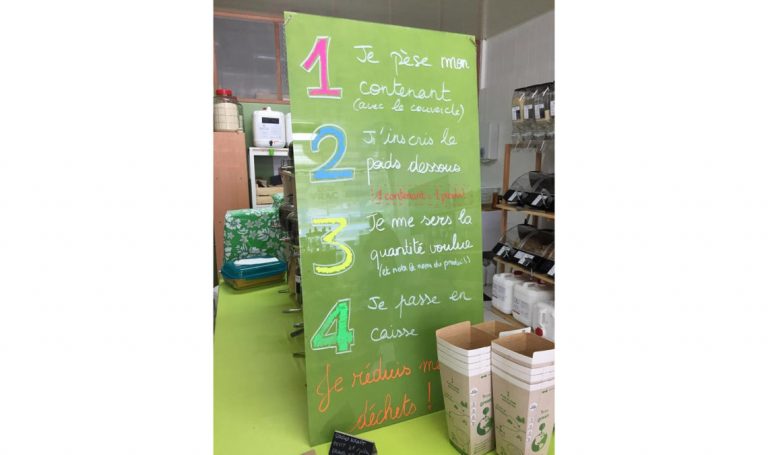 1 Je pèse mon
contenant
(avec le couvercle)
2 J'inscris le
poids dessous
(1 contenant = 1 produit)
3 Je me sers la
quantité voulue
(et note le nom du produit)
4 Je passe en
caisse
Je réduis mes
déchets !